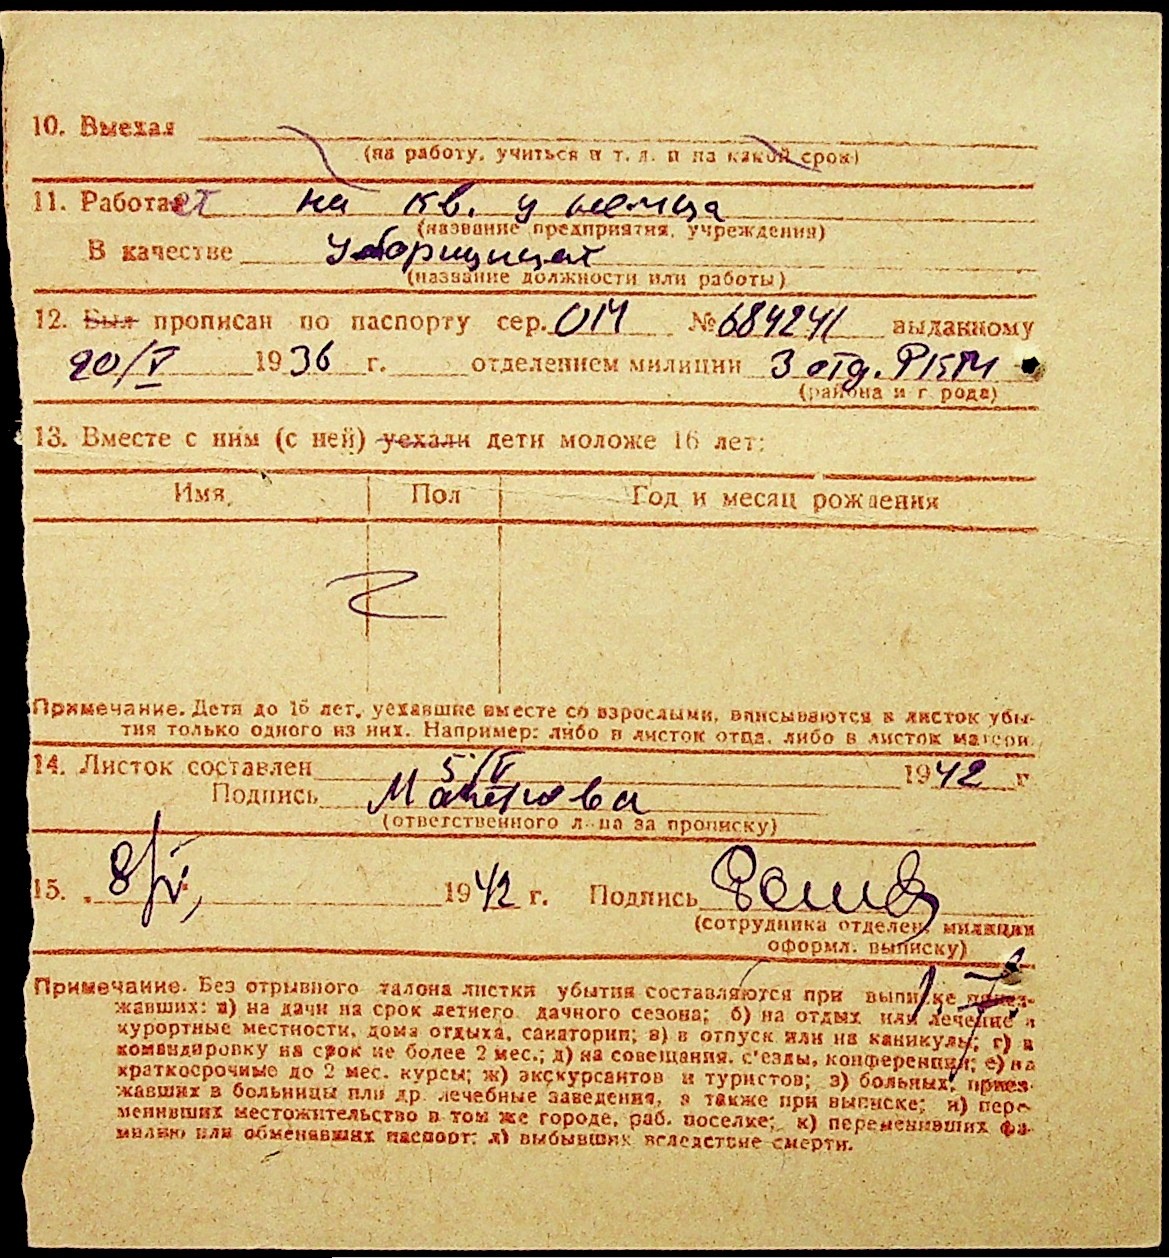 10. Выехал
(на работу, учиться и т. д. и на какой срок)
11. Работает на кв. у немца
(название предприятия, учреждения)
В качестве уборщицей
(название должности или работы)
12. Был прописан по паспорту сер. ОМ № 684241 выданному
20/V 1936 г. отделением милиции 3 отд. РКМ
(района и города)
13. Вместе с ним (с ней) уехали дети моложе 16 лет:
Имя Пол Год и месяц рождения
Примечание. Дети до 16 лет, уехавшие вместе со взрослыми, вписываются в листок убы-
тия только одного из них. Например: либо в листок отца, либо в листок матери.
14. Листок составлен 5/V 1942 г
Подпись
(ответственного лица за прописку)
15. 8/V, 1942 г. Подпись
(сотрудника отделен. милиции
оформл. выписку)
Примечание. Без отрывного талона листки убытия составляются при выписке приез-
жавших: а) на дачи на срок летнего дачного сезона; б) на отдых или лечение в
курортные местности, дома отдыха, санатории; в) в отпуск или на каникулы; г) в
командировку на срок не более 2 мес.; д) на совещания, с'езды, конференции; е) на
краткосрочные до 2 мес. курсы; ж) экскурсантов и туристов; з) больных, приез-
жавших в больницы или др. лечебные заведения, а также при выписке; и) пере-
менивших местожительство в том же городе, раб. поселке; к) переменивших фа-
милию или обменявших паспорт; л) выбывших вследствие смерти.